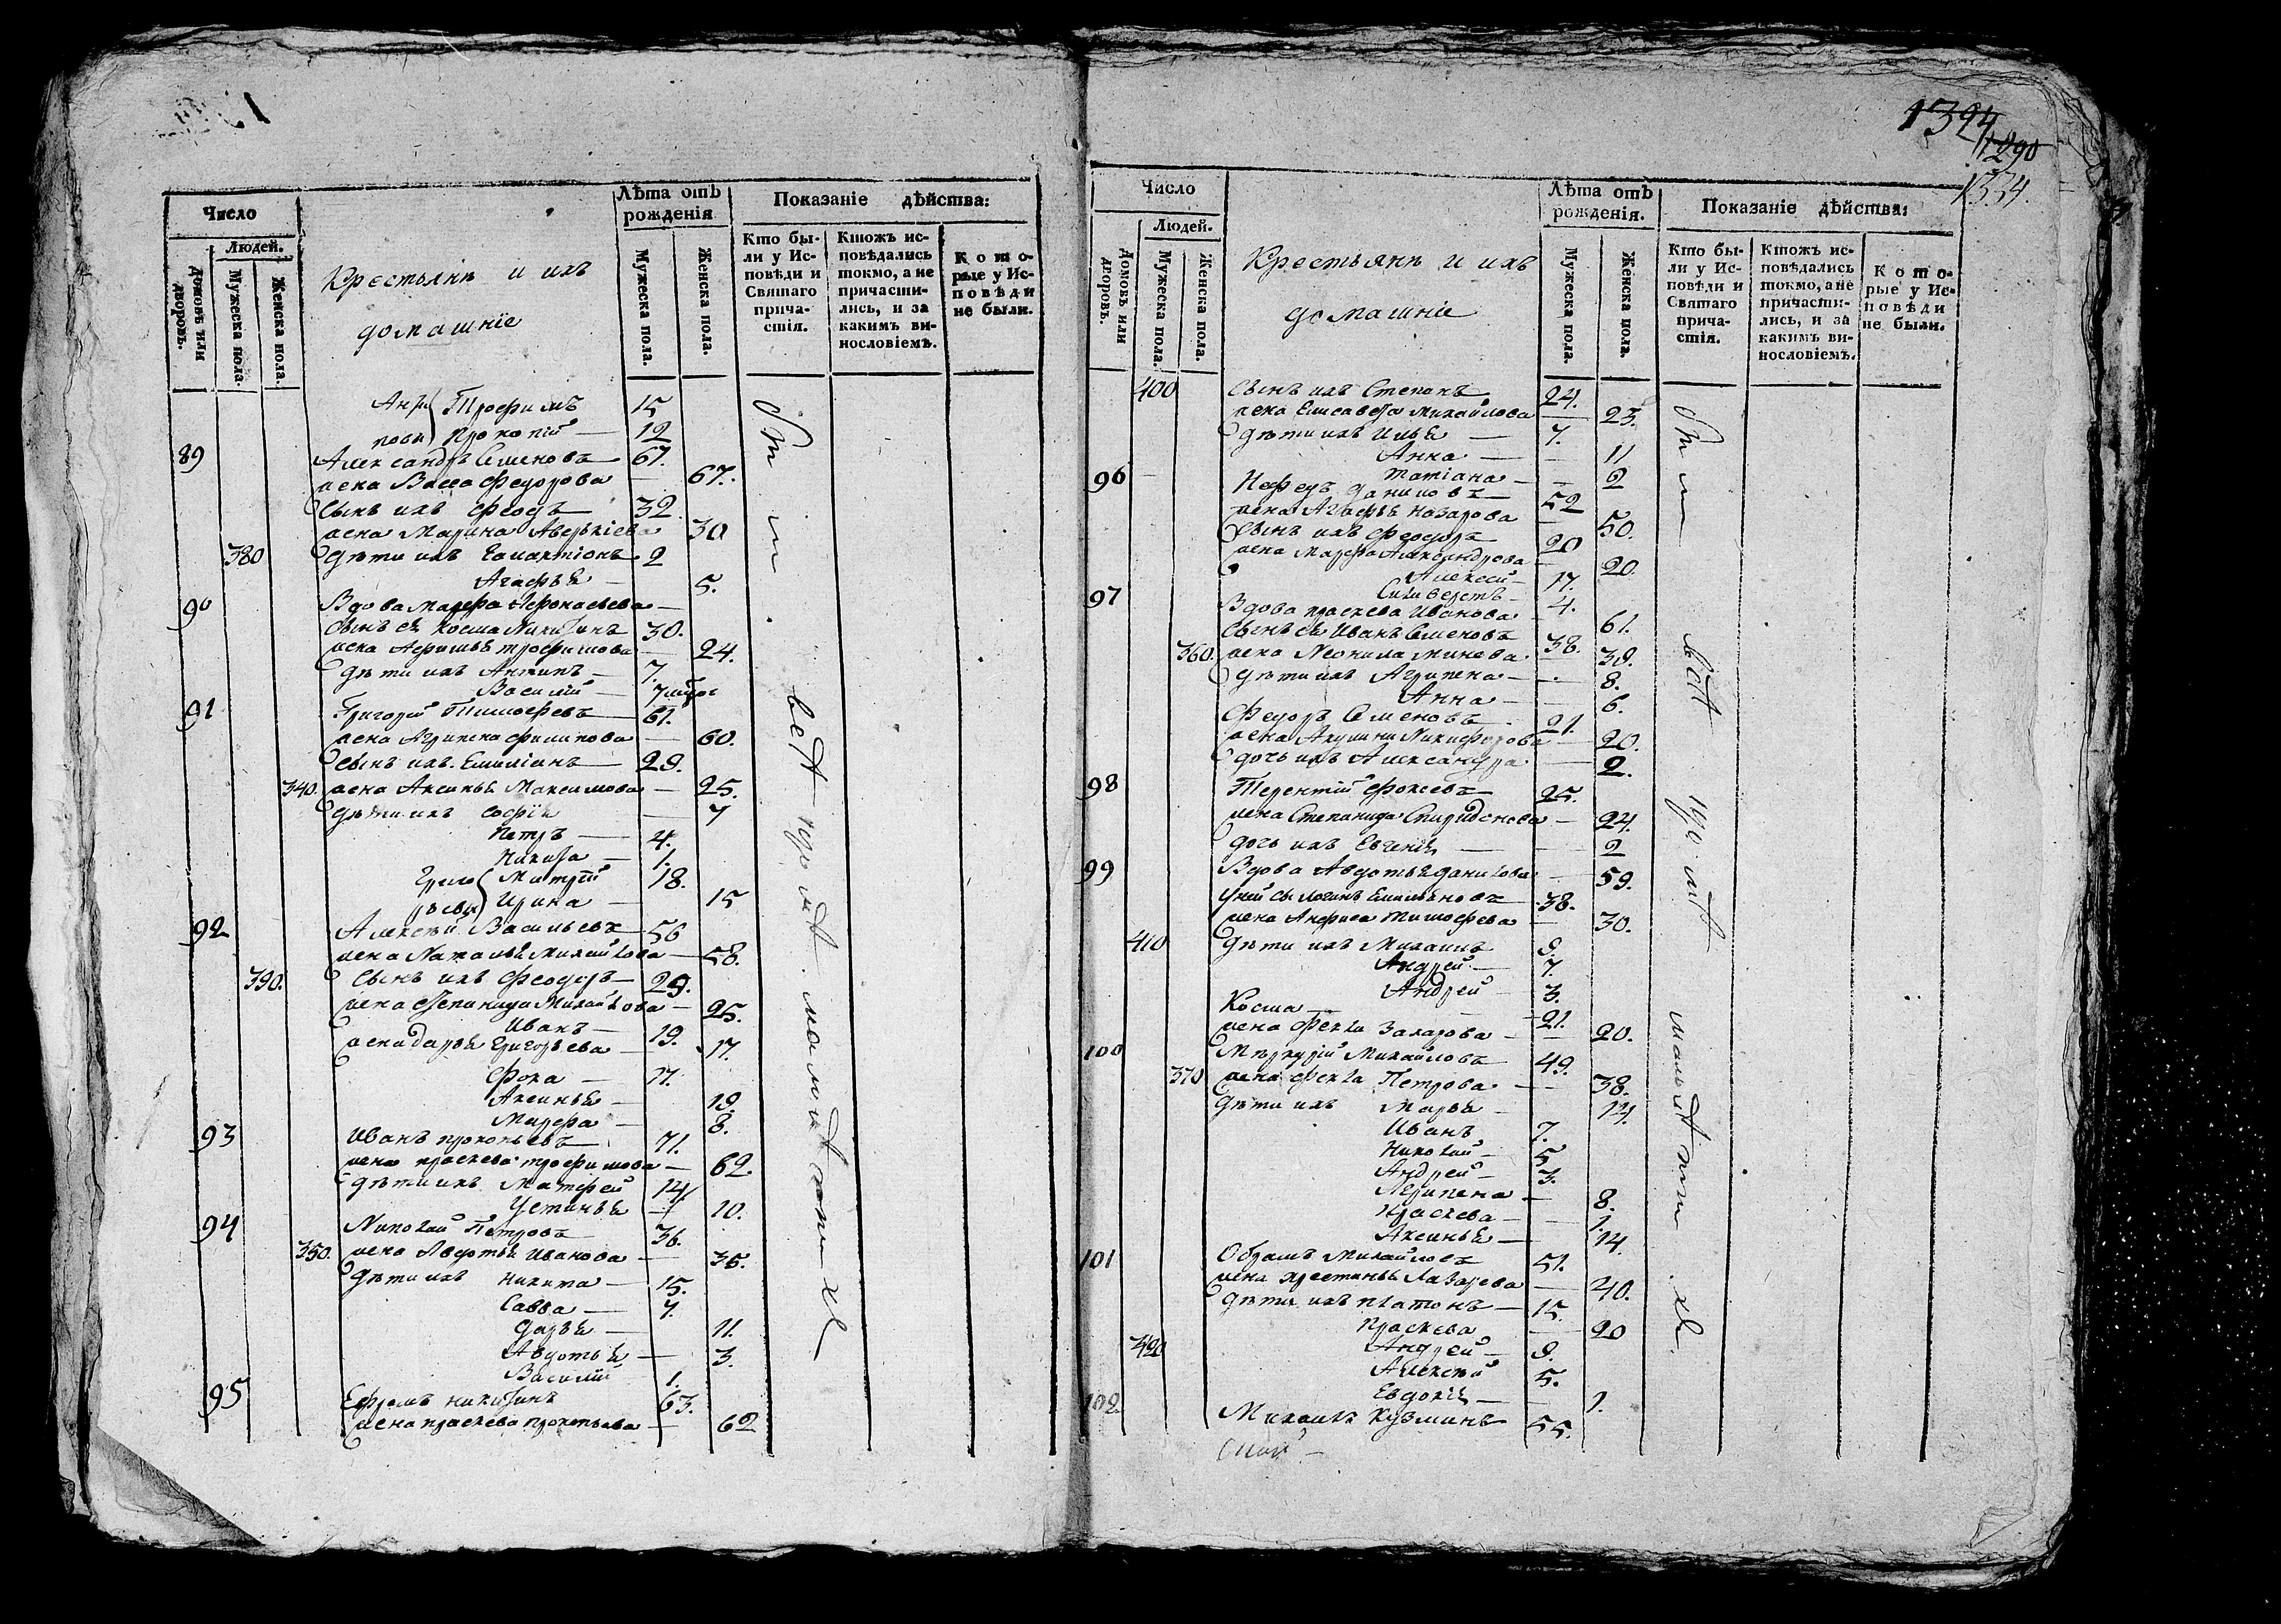 Число
Людей.
домовъ или дворовъ.
Мужеска пола.
Женска пола.
Крестьянѣ и ихъ
домашніе
Лѣта отъ рожденія
Мужеска пола.
Женска пола.
Показаніе дѣйства:
Кто бы-
ли у Ис-
повѣди и
Святаго
прича-
стія.
Ктожъ ис-
повѣдались
токмо, а не
причасти-
лись, и за
какимъ ви-
нословіемъ.
Кото-
рые у Ис-
повѣди
не были.
Трофимъ 15
Прокопій 12
89 Александръ Семеновъ 67.
жена Васса Федорова 67.
сынъ ихъ 32
жена Марина Аверкіева 30
380 дѣти ихъ 2
Агафья 5.
90 Вдова Марфа Афонасьева
сынъ ея Косма Никитинъ 30.
жена Афимья Трофимова 24.
дѣти ихъ Антипъ 7.
Василій
91 Григорій Тимофеевъ 61.
жена Агрипена Филипова 60.
сынъ ихъ Емиліанъ 29.
340. жена Аксинья Максимова 25.
дѣти ихъ Софія 7
Петръ 4.
Никита 1.
Митрій 18.
Ирина 15
92 Алексѣй Васильевъ 56
жена Наталья Михайлова 58.
390. сынъ ихъ Феодоръ 29.
жена Степанида Михайлова 25.
Иванъ 19.
жена Дарья Григорьева 17.
Фока 17.
Аксинья 19.
Марфа 8.
93 Иванъ Прокопьевъ 71.
жена Праскева Трофимова 62.
дѣти ихъ Матфей 14
Устинья 10.
94 Николай Петровъ 36.
350. жена Авдотья Иванова 35.
дѣти ихъ Никита 15.
Савва 7.
Дарья 11.
Авдотья 3.
Василій 1.
95 Ефремъ Никитинъ 63.
жена Праскева Прокопьева 62
1394
1290
1334.
Число
Людей.
домовъ или дворовъ.
Мужеска пола.
Женска пола.
Крестьянѣ и ихъ
домашніе
Лѣта отъ рожденія.
Мужеска пола.
Женска пола.
Показаніе дѣйства:
Кто бы-
ли у Ис-
повѣди и
Святаго
прича-
стія.
Ктожъ ис-
повѣдались
токмо, а не
причасти-
лись, и за
какимъ ви-
нословіемъ.
Кото-
рые у Ис-
повѣди
не были.
400 сынъ ихъ Степанъ 24.
жена Елисавета Михайлова 23.
дѣти ихъ Илья 7.
Анна 11
Татіана 2
96 Нефедъ Даниловъ 52
жена Агафья Назарова 50.
сынъ ихъ Феодоръ 20
жена Марфа Александрова 20.
Алексѣй 17.
Сильверстъ 4.
97 Вдова Праскева Иванова 61.
сынъ ея Иванъ Семеновъ 38.
360. жена Неонила Минева 39.
дѣти ихъ Агрипена 8.
Анна 6.
Федоръ Семеновъ 21.
жена Акулина Никифорова 20.
дочь ихъ Александра 2.
98 Терентій Фокеевъ 25.
жена Степанида Спиридонова 24.
дочь ихъ Евгенія 2
99 Вдова Авдотья Данилова 59.
Емильяновъ 38.
жена Анфиса Тимофеева 30.
410 дѣти ихъ Михаилъ 9.
Андрей 7.
Андрей 3.
Косма 21.
жена Фекла Захарова 20.
100 Меркурій Михайловъ 49.
370 жена Фекла Петрова 38.
дѣти ихъ Марья 14.
Иванъ 7.
Николай 5
Андрей 3.
Агрипена 8.
Праскева 1.
Аксинья 14.
101 Абрамъ Михайловъ 51.
жена Хрестинья Лазарева 40.
дѣти ихъ Платонъ 15.
Праскева 20
420 Андрей 9.
Алексѣй 5.
Евдокія 1.
102. Михаилъ Кузминъ 55.